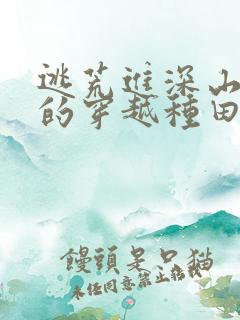 逃荒進深山
的穿越種田
饅頭是只貓
未任同意禁止